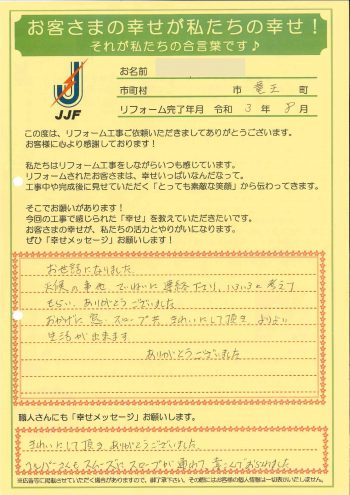 お客さまの幸せが私たちの幸せ！
それが私たちの合言葉です♪
JJF
お名前
市町村 市 竜王 町
リフォーム完了年月 令和 3 年 8 月
この度は、リフォーム工事ご依頼いただきましてありがとうございます。
お客様に心より感謝しております！
私たちはリフォーム工事をしながらいつも感じています。
リフォームされたお客さまは、幸せいっぱいなんだなって。
工事中や完成後に見せていただく「とっても素敵な笑顔」から伝わってきます。
そこでお願いがあります！
今回の工事で感じられた「幸せ」を教えていただきたいです。
お客さまの幸せが、私たちの活力とやりがいになります。
ぜひ「幸せメッセージ」お願いします！
お世話になりました
天候の事も ていねいに連絡下さり、いろいろと考えて
もらい、ありがとうございました
おかげで 窓、スロープ共 きれいにして頂き よりよい
生活が出来ます
ありがとうございました
職人さんにも「幸せメッセージ」お願いします。
きれいにして頂き ありがとうございました
ヘルパーさんもスムーズにスロープが通れて 喜こんでおられました
※広告等に掲載させていただく場合がありますので、御了承下さい。その際にはお客様の個人情報は一切表示いたしません。